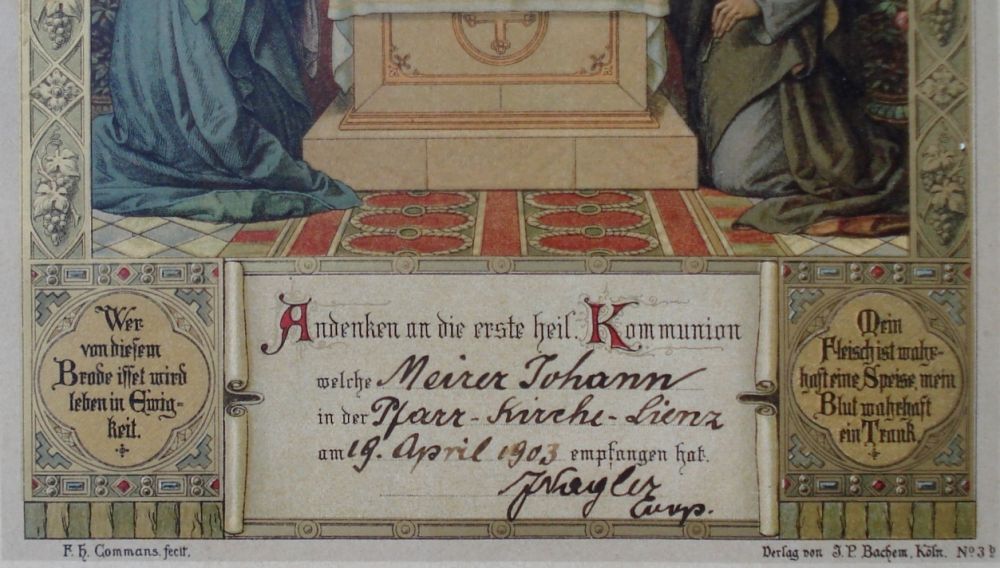 Wer
von diesem
Brode isset wird
leben in Ewig-
keit.
Andenken an die erste heil. Kommunion
welche Meirer Johann
in der Pfarr-Kirche-Lienz
am 19. April 1903 empfangen hat.
JNagler
Coop.
Mein
Fleisch ist wahr-
haft eine Speise, mein
Blut wahrhaft
ein Trank.
F. H. Commans. fecit.
Verlag von J. P. Bachem, Köln. No 3 b